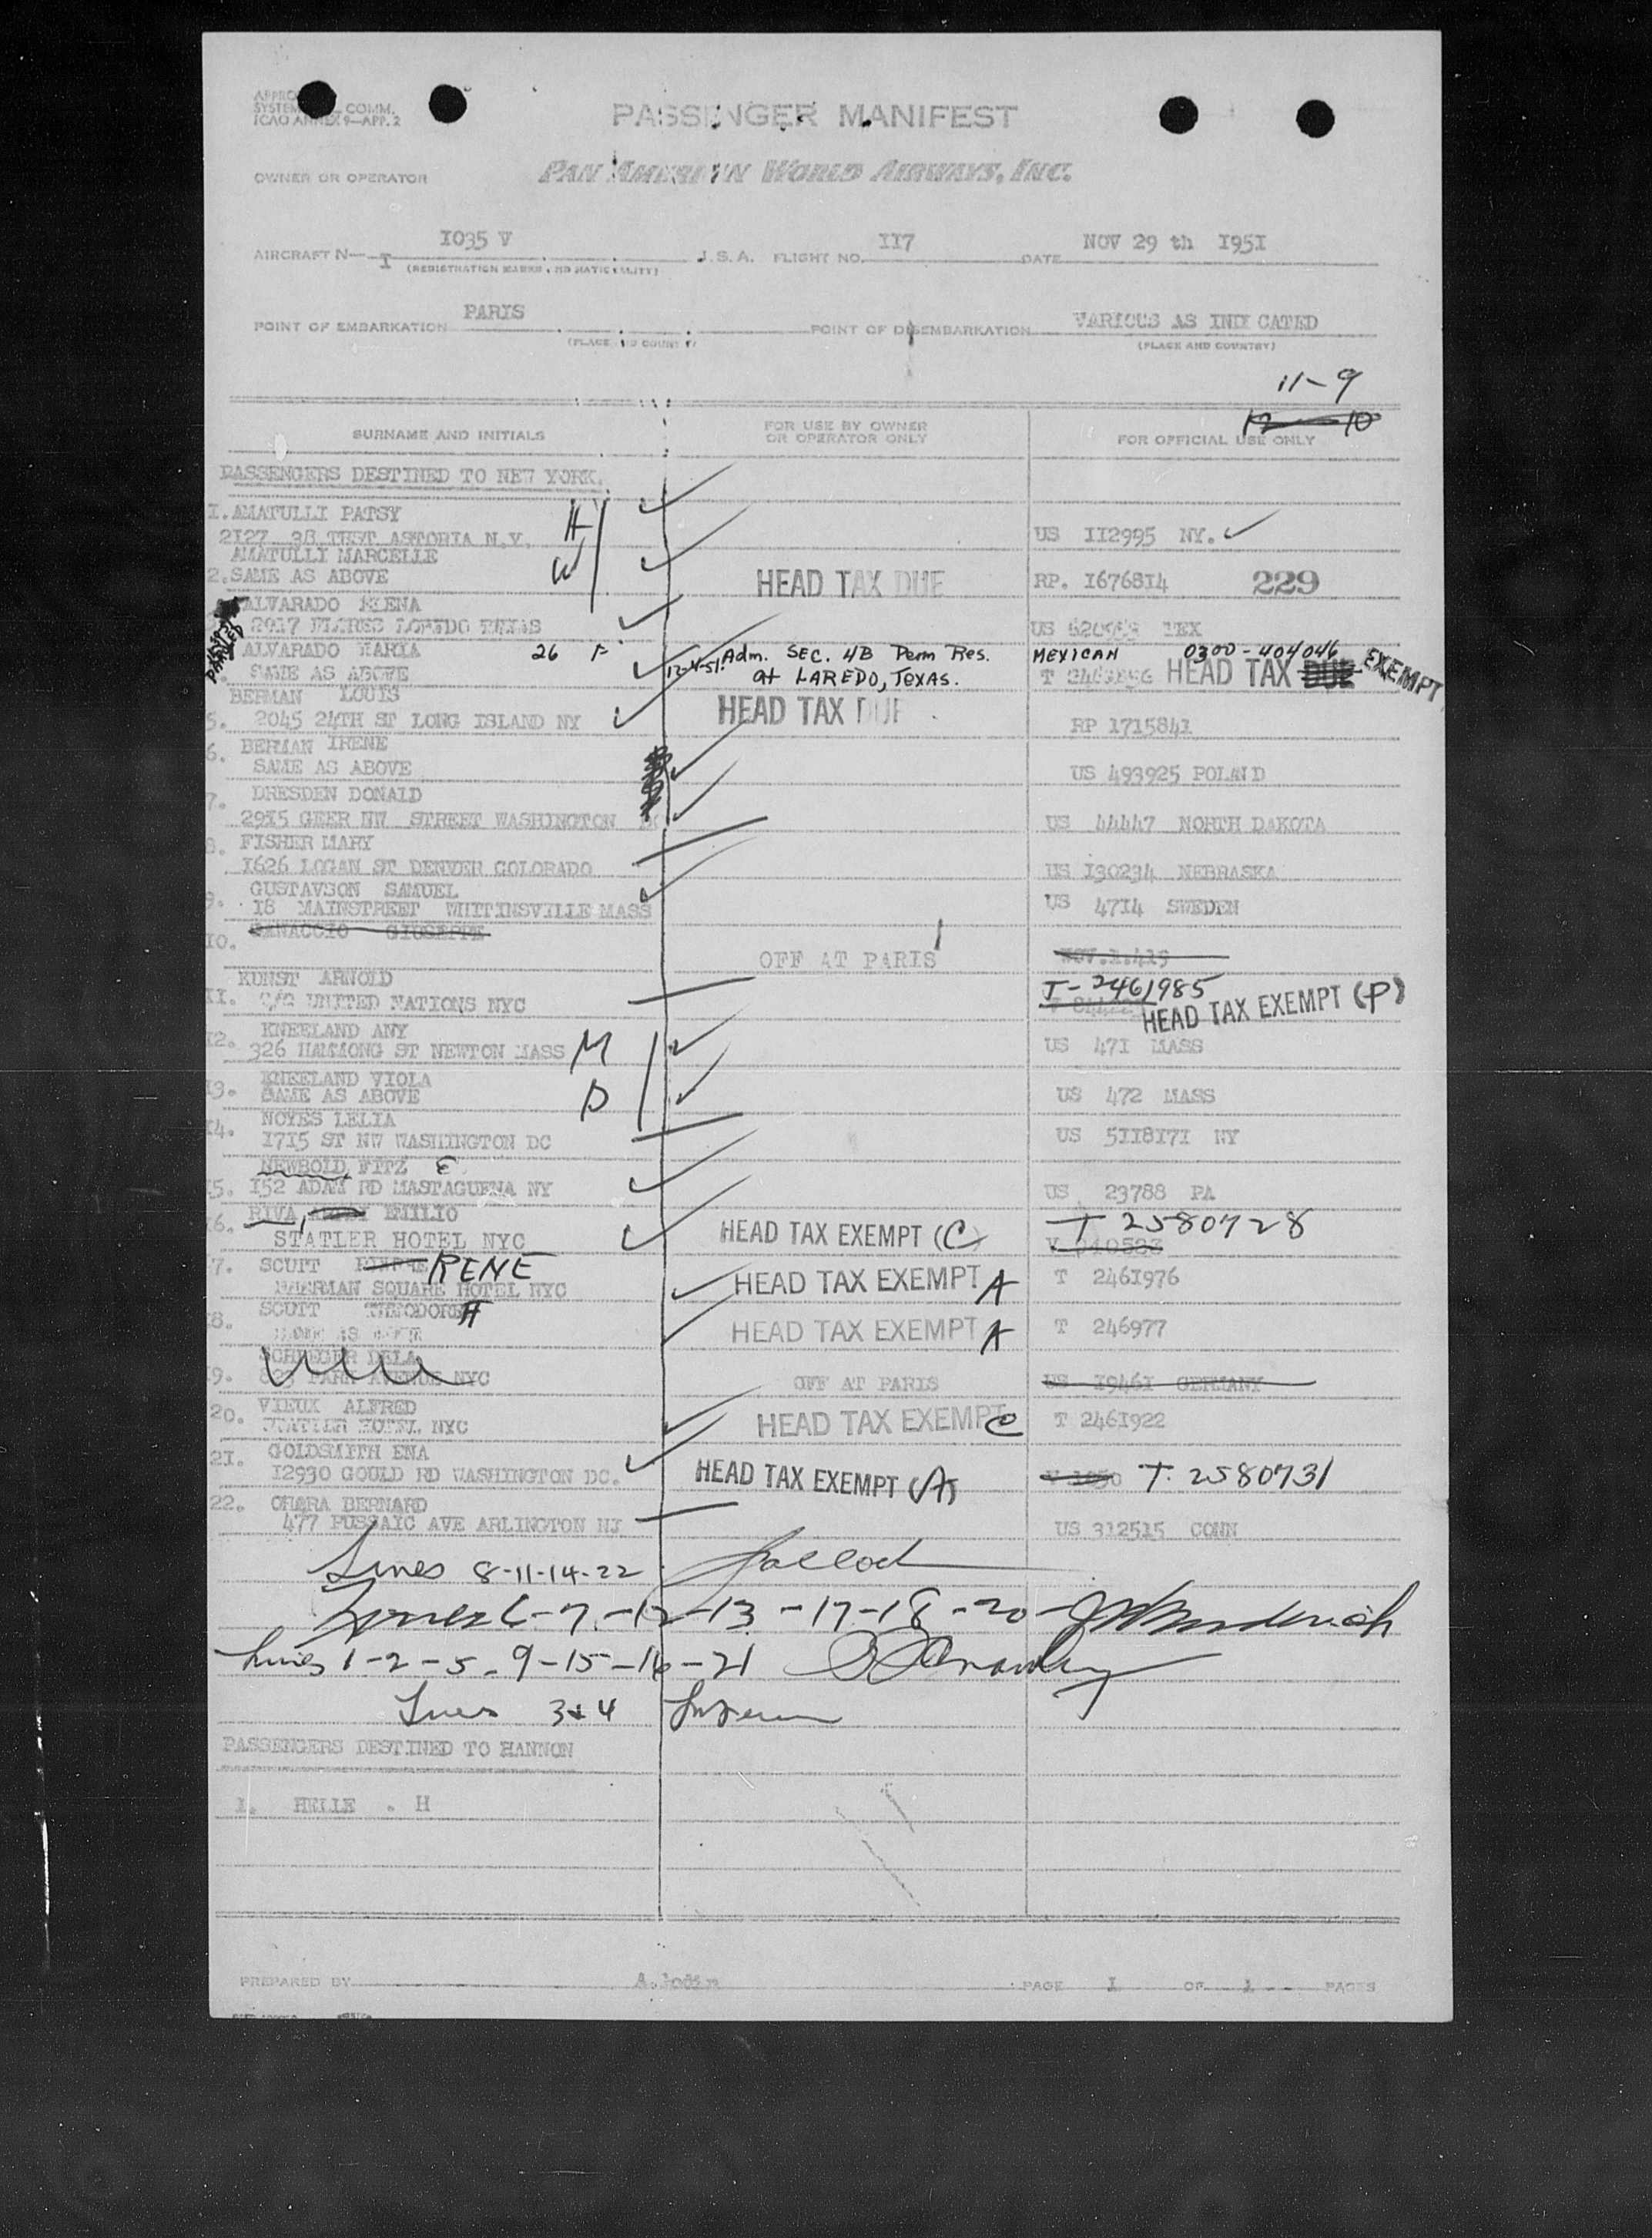 COMM.
ICAO ANNEX 9—APP. 2
PASSENGER MANIFEST
OWNER OR OPERATOR PAN AMERICAN WORLD AIRWAYS, INC.
AIRCRAFT N— I 1035 V U.S.A. FLIGHT NO. 117 DATE NOV 29 th 1951
(REGISTRATION MARKS AND NATIONALITY)
POINT OF EMBARKATION PARIS POINT OF DISEMBARKATION VARIOUS AS INDICATED
(PLACE AND COUNTRY) (PLACE AND COUNTRY)
11-9
12 10
SURNAME AND INITIALS FOR USE BY OWNER OR OPERATOR ONLY FOR OFFICIAL USE ONLY
PASSENGERS DESTINED TO NEW YORK.
1. AMATULLI PATSY H
2127 38 ASTORIA N.Y. US 112995 NY.
AMATULLI MARCELLE W
2. SAME AS ABOVE HEAD TAX DUE RP. 1676814 229
ALVARADO ELENA
2917 FLORES LOREDO TEXAS US TEX
ALVARADO MARIA 26 F 12-4-51 Adm. SEC. 4B Perm Res. MEXICAN 0300-404046
SAME AS ABOVE at LAREDO, TEXAS. T HEAD TAX DUE EXEMPT
BERMAN LOUIS
5. 2045 24TH ST LONG ISLAND NY HEAD TAX DUE RP 1715841
6. BERMAN IRENE
SAME AS ABOVE US 493925 POLAND
7. DRESDEN DONALD
2915 GEER NW STREET WASHINGTON US 44447 NORTH DAKOTA
8. FISHER MARY
1626 LOGAN ST DENVER COLORADO US 130234 NEBRASKA
GUSTAVSON SAMUEL
9. 18 MAINSTREET WHITINSVILLE MASS US 4714 SWEDEN
10. GIUSEPPE OFF AT PARIS
KUNST ARNOLD T-2461985
11. C/O UNITED NATIONS NYC HEAD TAX EXEMPT (P)
KNEELAND ANY
12. 326 HAMMONG ST NEWTON MASS M US 471 MASS
KNEELAND VIOLA
13. SAME AS ABOVE D US 472 MASS
NOYES LELIA
14. 1715 ST NW WASHINGTON DC US 5118171 NY
NEWBOLD FITZ E
15. 152 ADAM RD MASTAGUENA NY US 23788 PA
RIVA, EMILIO T 2580728
16. STATLER HOTEL NYC HEAD TAX EXEMPT (C)
17. SCUIT RENE
SHERMAN SQUARE HOTEL NYC HEAD TAX EXEMPT A T 2461976
SCUIT THEODORE H
18. SAME AS HEAD TAX EXEMPT A T 246977
19. PARK AVENUE NYC OFF AT PARIS US 19461 GERMANY
20. VIEUX ALFRED
STATLER HOTEL NYC HEAD TAX EXEMPT C T 2461922
21. GOLDSMITH ENA
12930 GOULD RD WASHINGTON DC. HEAD TAX EXEMPT (A) T. 2580731
22. OHARA BERNARD
477 PUSSAIC AVE ARLINGTON NJ US 312515 CONN
Lines 8-11-14-22
Lines 6-7-12-13-17-18-20
Lines 1-2-5-9-15-16-21
Lines 3 & 4
PASSENGERS DESTINED TO HANNON
1. HELLE . H
PREPARED BY PAGE 1 OF 1 PAGES